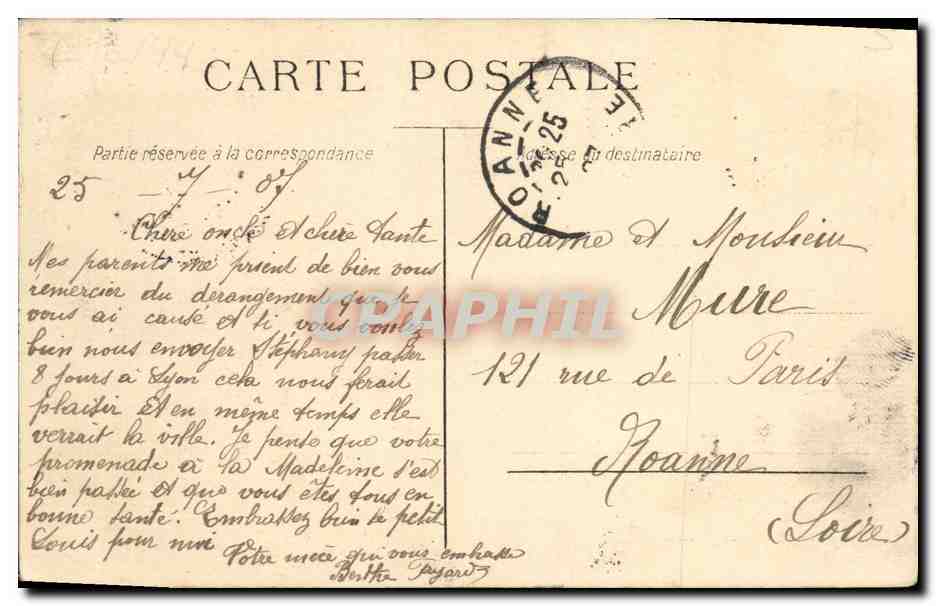 CARTE POSTALE
Partie réservée à la correspondance
Adresse du destinataire
ROANNE
25
25 - 7 - 07
Chere oncle et chère tante
Mes parents me prient de bien vous
remercier du dérangement que je
vous ai causé et si vous voulez
bien nous envoyer Stéphany passer
8 jours à Lyon cela nous ferait
plaisir et en même temps elle
verrait la ville. Je pense que votre
promenade à la Madeleine s'est
bien passée et que vous êtes tous en
bonne santé. Embrassez bien le petit
Louis pour moi
Votre nièce qui vous embrasse
Berthe
Madame et Monsieur
Mure
121 rue de Paris
Roanne
(Loire)
CPAPHIL